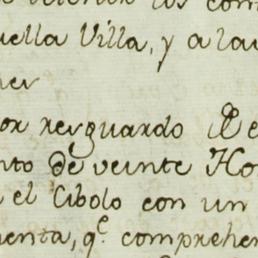 los com
uella Villa, y a la
or resguardo De
nto de veinte Ho
el Cibolo con un
enta, q.e comprehen